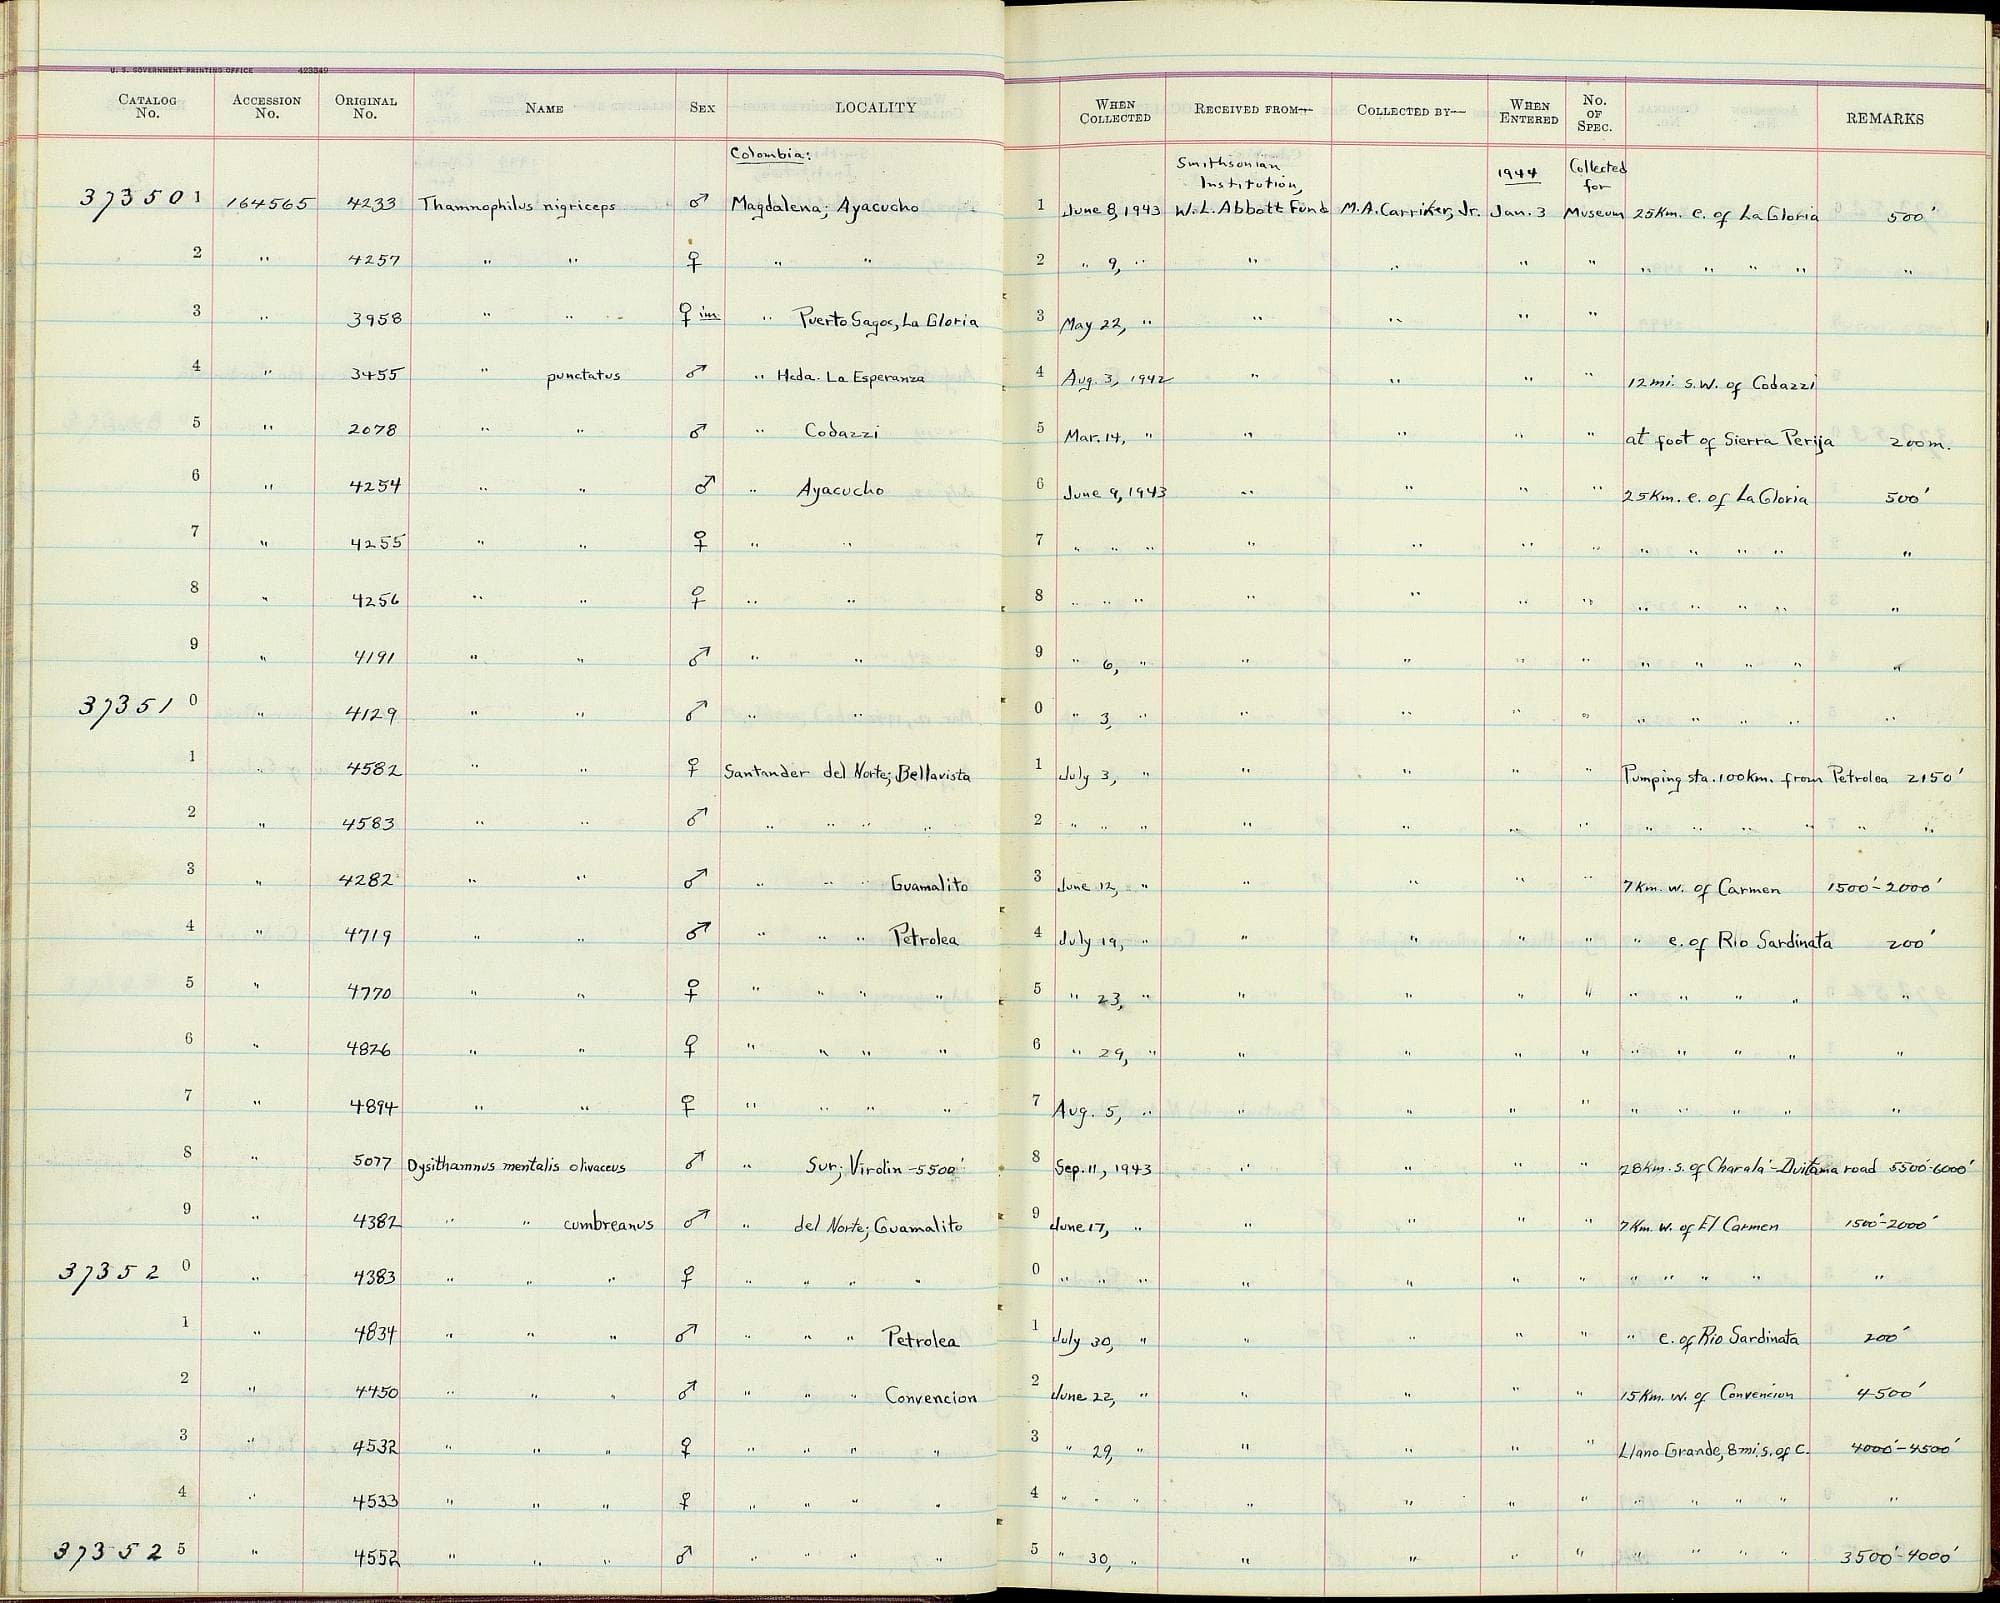 U. S. GOVERNMENT PRINTING OFFICE 423349
CATALOG No. ACCESSION No. ORIGINAL No. NAME SEX LOCALITY WHEN COLLECTED RECEIVED FROM— COLLECTED BY— WHEN ENTERED No. OF SPEC. REMARKS
Colombia: Smithsonian Institution, 1944 Collected for
373501 164565 4233 Thamnophilus nigriceps ♂ Magdalena; Ayacucho 1 June 8, 1943 W.L. Abbott Fund M.A. Carriker, Jr. Jan. 3 Museum 25Km. e. of La Gloria 500'
2 " 4257 " " ♀ " " 2 " 9, " " " " " " " " " "
3 " 3958 " " ♀ im " Puerto Sagos, La Gloria 3 May 22, " " " " "
4 " 3455 " punctatus ♂ " Hcda. La Esperanza 4 Aug. 3, 1942 " " " " 12mi. s.w. of Codazzi
5 " 2078 " " ♂ " Codazzi 5 Mar. 14, " " " " " at foot of Sierra Perija 200m.
6 " 4254 " " ♂ " Ayacucho 6 June 9, 1943 " " " " 25Km. e. of La Gloria 500'
7 " 4255 " " ♀ " " 7 " " " " " " " " " " " "
8 " 4256 " " ♀ " " 8 " " " " " " " " " " " "
9 " 4191 " " ♂ " " 9 " 6, " " " " " " " " " "
373510 " 4129 " " ♂ " " 0 " 3, " " " " " " " " " "
1 " 4582 " " ♀ Santander del Norte; Bellavista 1 July 3, " " " " " Pumping sta. 100km. from Petrolea 2150'
2 " 4583 " " ♂ " " " " 2 " " " " " " " " " " " " "
3 " 4282 " " ♂ " " " Guamalito 3 June 12, " " " " " 7Km. w. of Carmen 1500'-2000'
4 " 4719 " " ♂ " " " Petrolea 4 July 19, " " " " " " e. of Rio Sardinata 200'
5 " 4770 " " ♀ " " " " 5 " 23, " " " " " " " " " "
6 " 4826 " " ♀ " " " " 6 " 29, " " " " " " " " " "
7 " 4894 " " ♀ " " " " 7 Aug. 5, " " " " " " " " " "
8 " 5077 Dysithamnus mentalis olivaceus ♂ " Sur; Virolin -5500' 8 Sep. 11, 1943 " " " " 28Km. s. of Charalá-Duitama road 5500'-6000'
9 " 4382 " " cumbreanus ♂ " del Norte; Guamalito 9 June 17, " " " " " 7Km. w. of El Carmen 1500'-2000'
373520 " 4383 " " " ♀ " " " " 0 " " " " " " " " " " " "
1 " 4834 " " " ♂ " " " Petrolea 1 July 30, " " " " " " e. of Rio Sardinata 200'
2 " 4450 " " " ♂ " " " Convencion 2 June 22, " " " " " 15Km. w. of Convencion 4500'
3 " 4532 " " " ♀ " " " " 3 " 29, " " " " " Llano Grande, 8mi. s. of C. 4000'-4500'
4 " 4533 " " " ♀ " " " " 4 " " " " " " " " " " " "
373525 " 4552 " " " ♂ " " " " 5 " 30, " " " " " " " " " 3500'-4000'